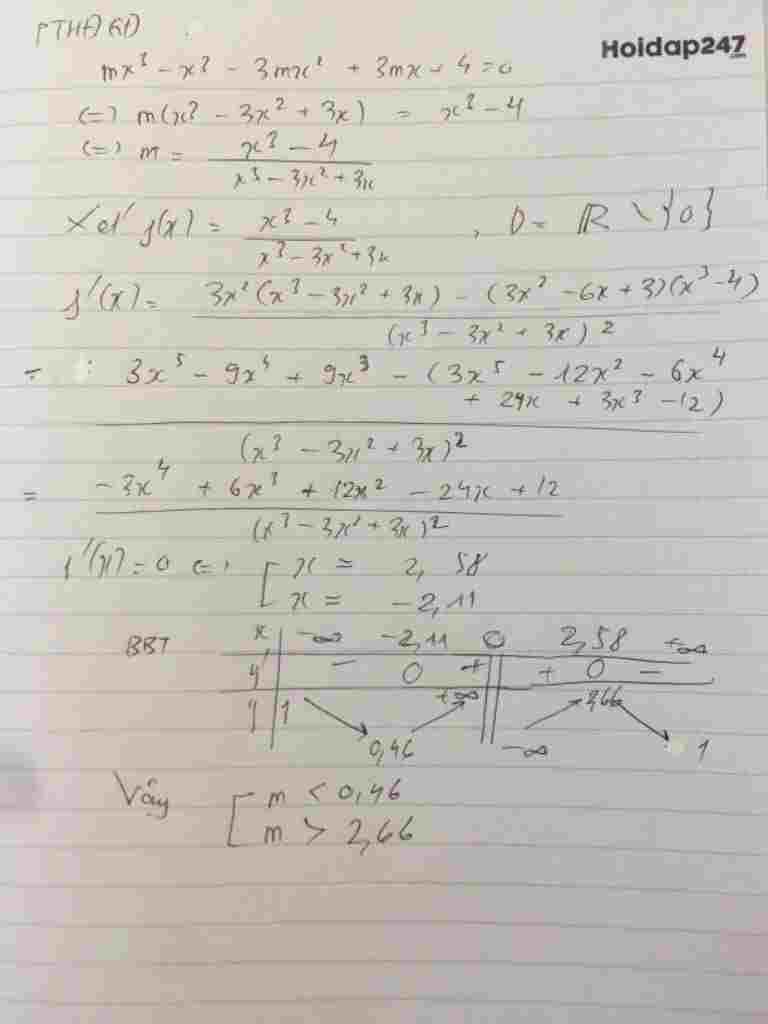 PTHĐGĐ
Hoidap247
.com
mx³ - x³ - 3mx² + 3mx + 4 = 0
(=) m(x³ - 3x² + 3x) = x³ - 4
(=) m = \frac{x³ - 4}{x³ - 3x² + 3x}
Xét f(x) = \frac{x³ - 4}{x³ - 3x² + 3x} , D = ℝ \ {0}
f'(x) = \frac{3x²(x³ - 3x² + 3x) - (3x² - 6x + 3)(x³ - 4)}{(x³ - 3x² + 3x)²}
= 3x⁵ - 9x⁴ + 9x³ - (3x⁵ - 12x² - 6x⁴
+ 24x + 3x³ - 12)
(x³ - 3x² + 3x)²
= \frac{-3x⁴ + 6x³ + 12x² - 24x + 12}{(x³ - 3x² + 3x)²}
f'(x) = 0 (=) [ x = 2,58
x = -2,11
BBT x -∞ -2,11 0 2,58 +∞
y' - 0 + || + 0 -
y 1 0,46 +∞ || -∞ 2,66 1
Vậy [ m < 0,46
m > 2,66